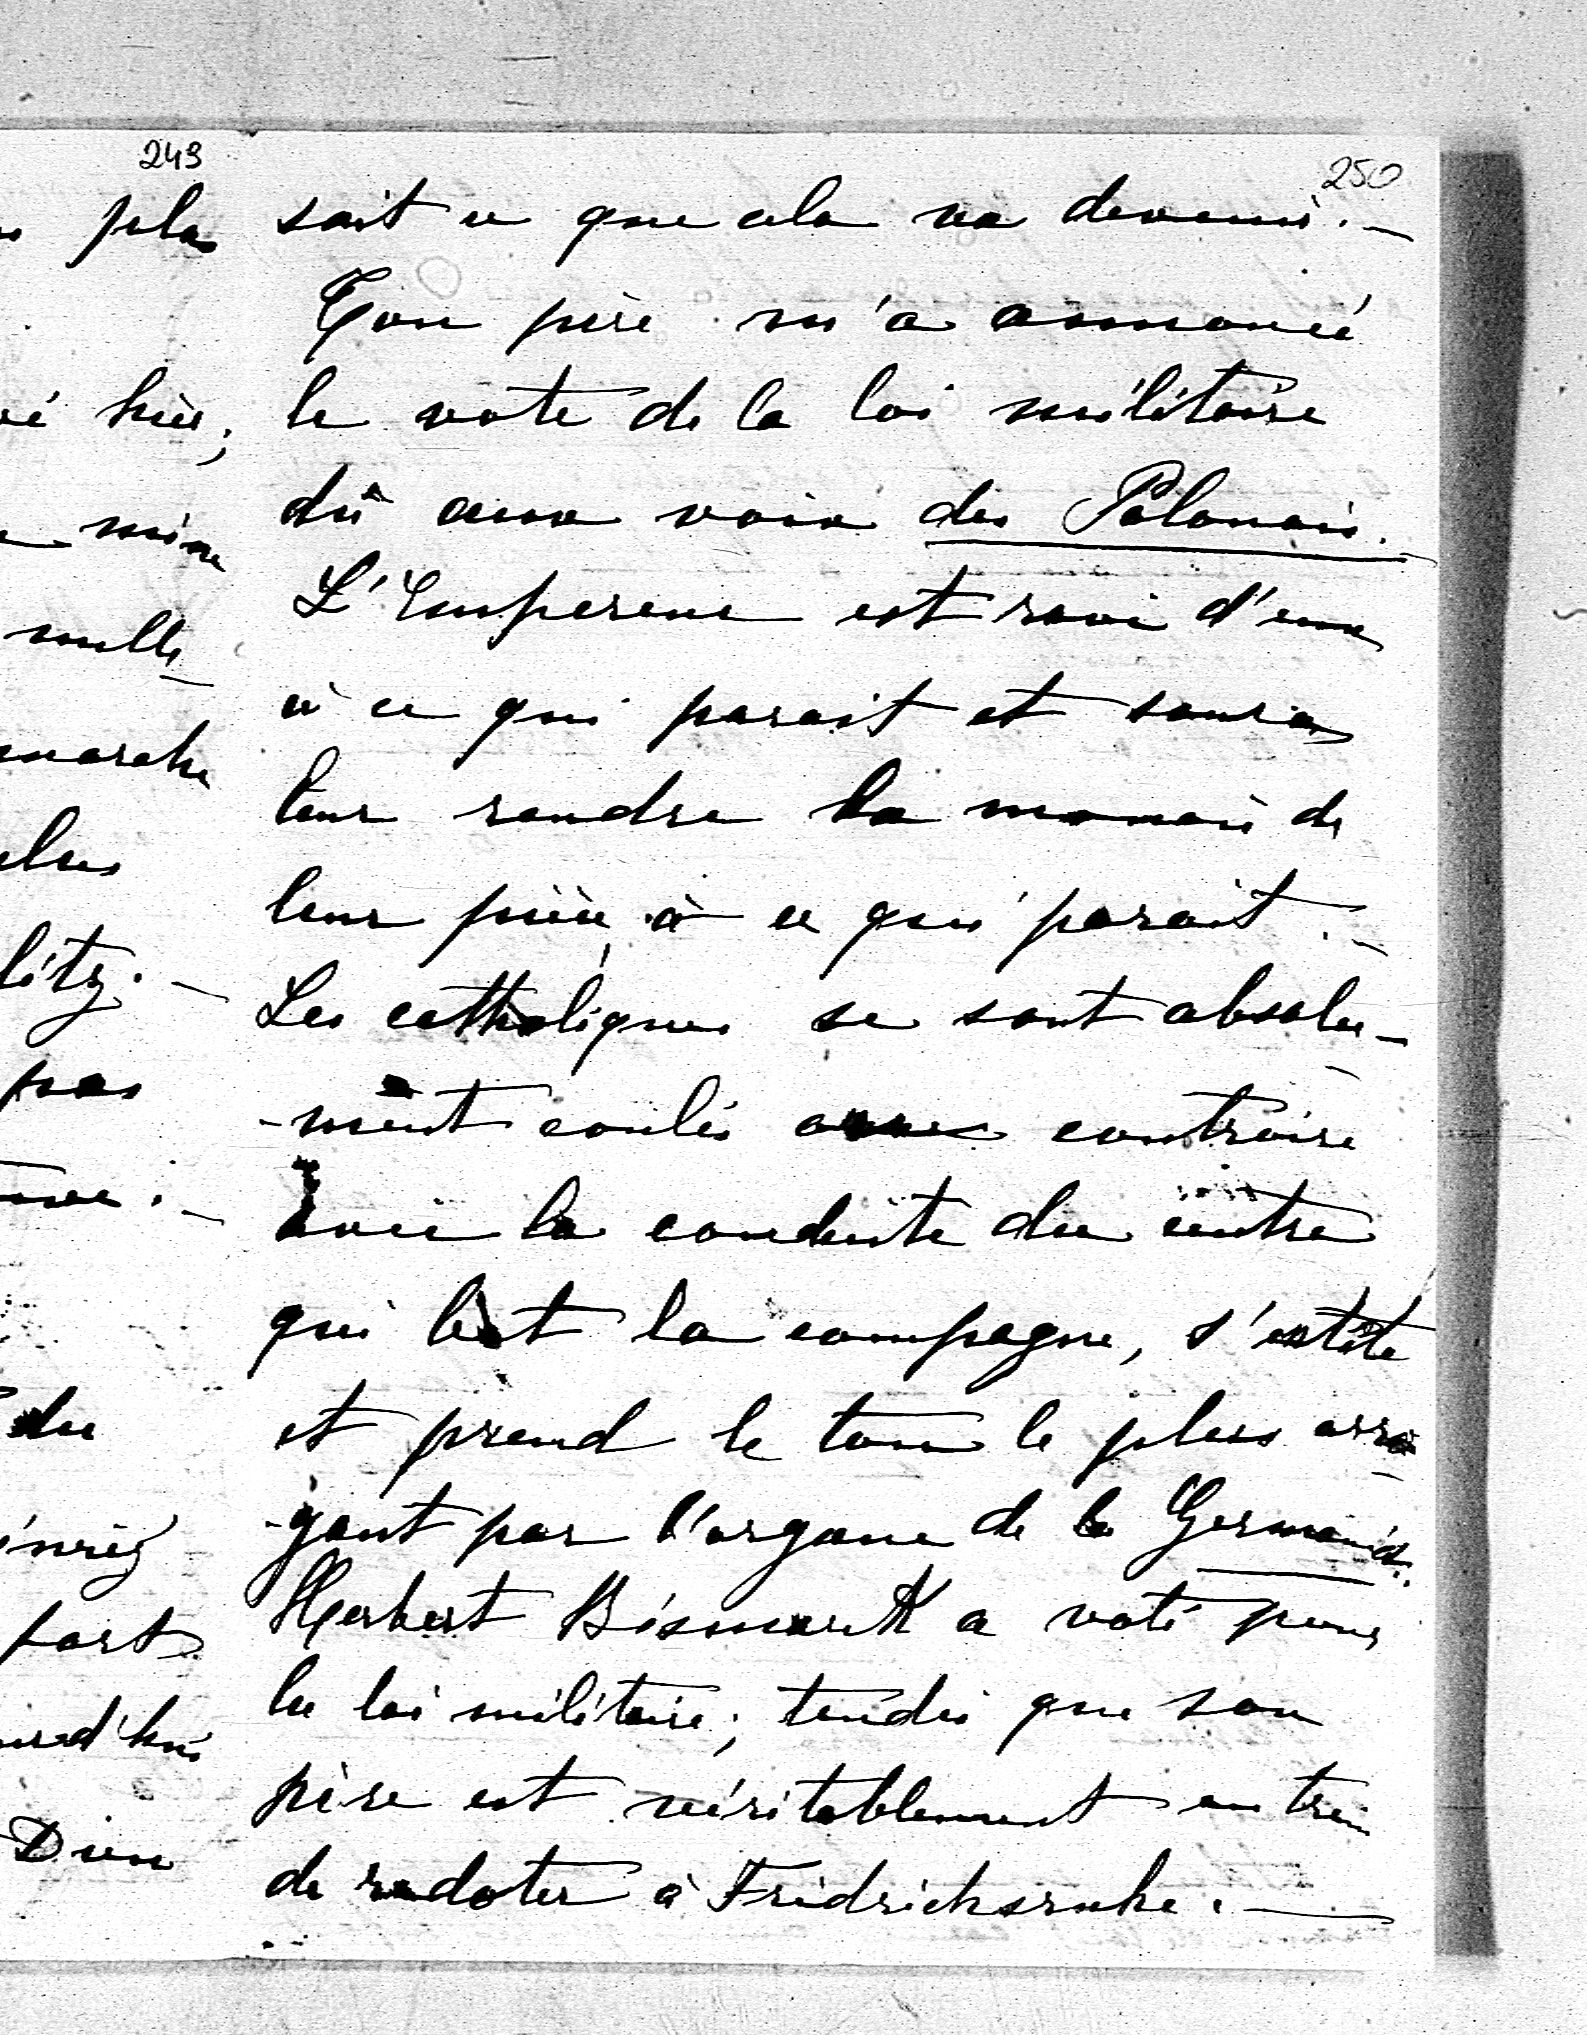 249
plus
hier,
mine
mille
marche
plus
litz. —
pas
du
fort
aujourd'hui
Dieu
250
sait ce que cela va devenir. —
Ton père m'a annoncé
le vote de la loi militaire
dû aux voix des Polonais. —
L'Empereur est ravi d'eux
à ce qui parait et saura
leur rendre la monnaie de
leur pièce, à ce qui parait. —
Les catholiques se sont absolu-
-ment coulés au contraire
avec la conduite du centre
qui bat la campagne, s'entête
et prend le ton le plus arro-
-gant par l'organe de la Germania.
Herbert Bismarck a voté pour
la loi militaire; tandis que son
père est véritablement en train
de radoter à Fridrichsruhe. —